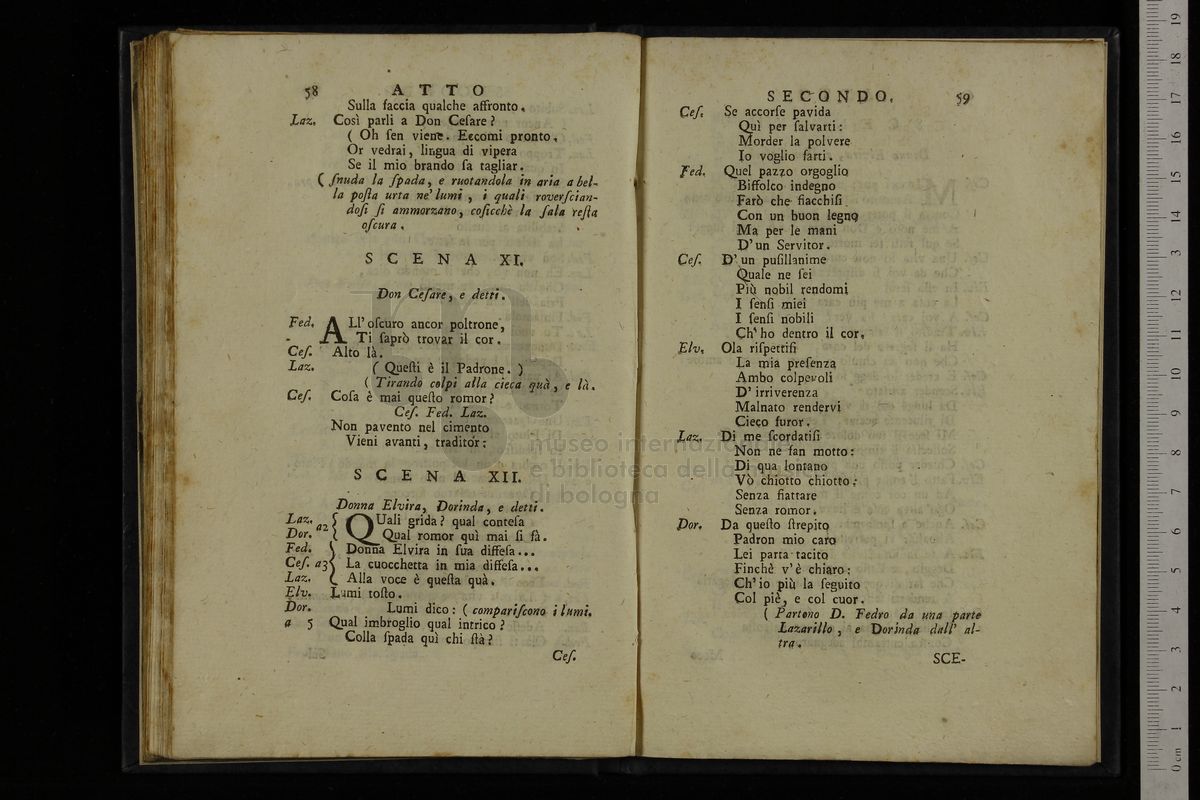 58 ATTO
Sulla faccia qualche affronto.
Laz. Così parli a Don Ceſare?
( Oh ſen viene. Eccomi pronto,
Or vedrai, lingua di vipera
Se il mio brando ſa tagliar.
( ſnuda la ſpada, e ruotandola in aria a bel-
la poſta urta ne' lumi, i quali roverſcian-
doſi ſi ammorzano, coſicchè la ſala reſta
oſcura.
SCENA XI.
Don Ceſare, e detti.
Fed. ALl' oſcuro ancor poltrone,
Ti ſaprò trovar il cor.
Ceſ. Alto là.
Laz. ( Queſti è il Padrone. )
( Tirando colpi alla cieca quà, e là.
Ceſ. Coſa è mai queſto romor?
Ceſ. Fed. Laz.
Non pavento nel cimento
Vieni avanti, traditor:
SCENA XII.
Donna Elvira, Dorinda, e detti.
Laz. a2 { QUali grida? qual conteſa
Dor. { Qual romor quì mai ſi fà.
Fed. { Donna Elvira in ſua diffeſa...
Ceſ. a3 { La cuocchetta in mia diffeſa...
Laz. { Alla voce è queſta quà.
Elv. Lumi toſto.
Dor. Lumi dico: ( compariſcono i lumi.
a 5 Qual imbroglio qual intrico?
Colla ſpada quì chi ſtà?
Ceſ.
SECONDO. 59
Ceſ. Se accorſe pavida
Quì per ſalvarti:
Morder la polvere
Io voglio farti.
Fed. Quel pazzo orgoglio
Biffolco indegno
Farò che fiacchiſi
Con un buon legno
Ma per le mani
D' un Servitor.
Ceſ. D' un puſillanime
Quale ne ſei
Più nobil rendomi
I ſenſi miei
I ſenſi nobili
Ch' ho dentro il cor.
Elv. Ola riſpettiſi
La mia preſenza
Ambo colpevoli
D' irriverenza
Malnato rendervi
Cieco furor.
Laz. Di me ſcordatiſi
Non ne fan motto:
Di qua lontano
Vò chiotto chiotto:
Senza fiattare
Senza romor.
Dor. Da queſto ſtrepito
Padron mio caro
Lei parta tacito
Finchè v' è chiaro:
Ch' io più la ſeguito
Col piè, e col cuor.
( Partono D. Fedro da una parte
Lazarillo, e Dorinda dall' al-
tra.
SCE-
museo internazionale
e biblioteca della musica
di bologna